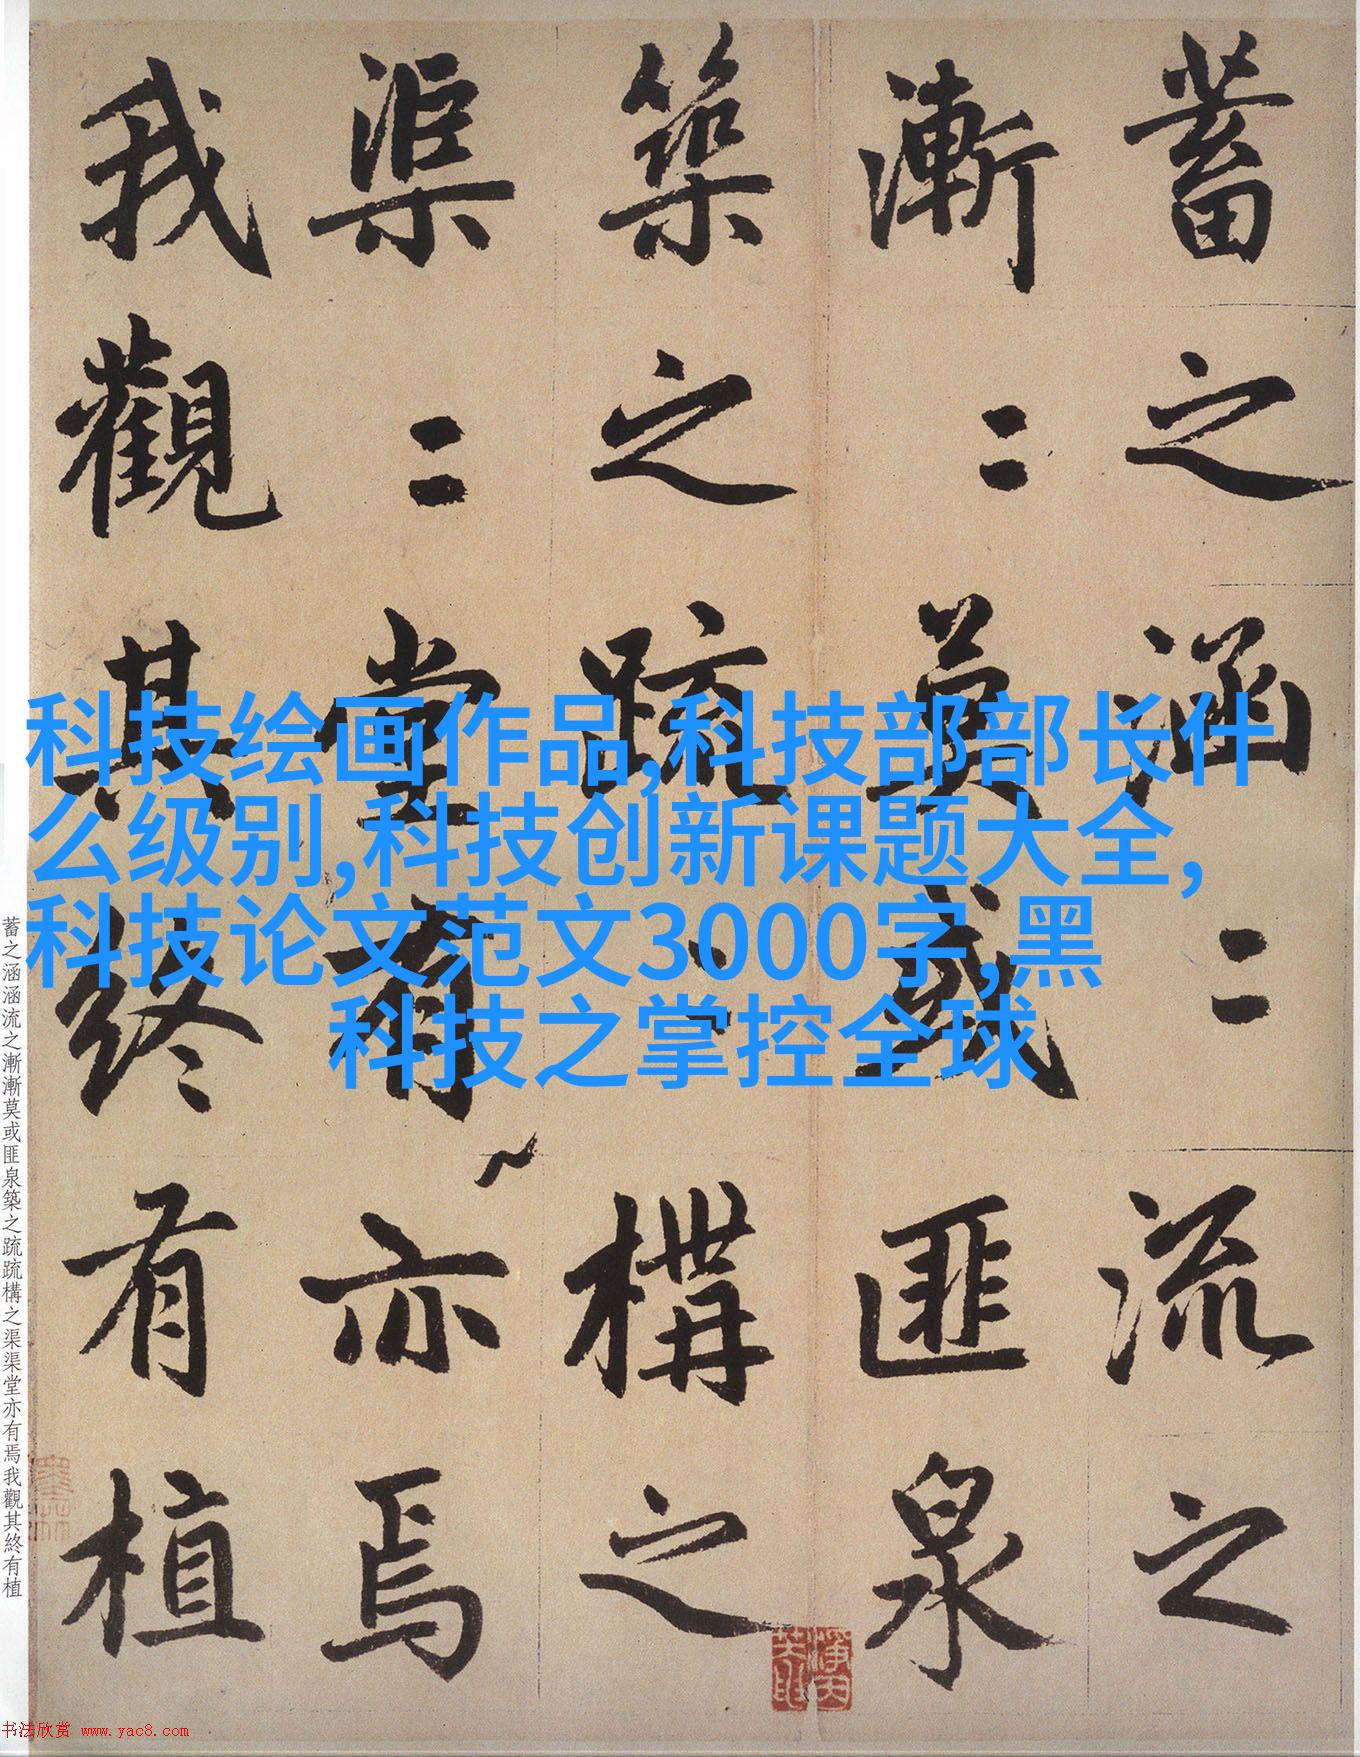 蓄之涵〻流之
漸〻莫或匪泉
築之疏〻構之
渠〻堂有亦焉
我觀其終有植
科技绘画作品,科技部部长什
么级别,科技创新课题大全,
科技论文范文3000字,黑
科技之掌控全球
蓄之涵涵流之漸漸莫或匪泉築之疏疏構之渠渠堂亦有焉我觀其終有植
书法欣赏 www.yac8.com